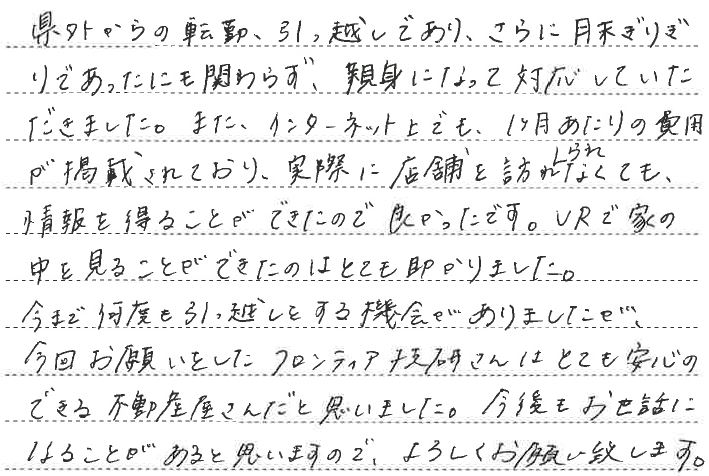 県外からの転勤、引っ越しであり、さらに月末ぎりぎ
りであったにも関わらず、親身になって対応していた
だきました。また、インターネット上でも、1ヶ月あたりの費用
が掲載されており、実際に店舗を訪れられなくても、
情報を得ることができたので良かったです。VRで家の
中を見ることができたのはとても助かりました。
今まで何度も引っ越しをする機会がありましたが、
今回お願いをしたフロンティア技研さんはとても安心の
できる不動産屋さんだと思いました。今後もお世話に
なることがあると思いますので、よろしくお願い致します。